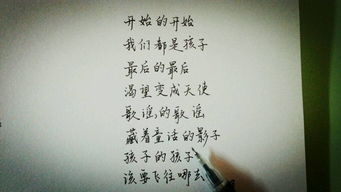 开始的开始
我们都是孩子
最后的最后
渴望变成天使
歌谣的歌谣
藏着童话的影子
孩子的孩子
该要飞往哪去